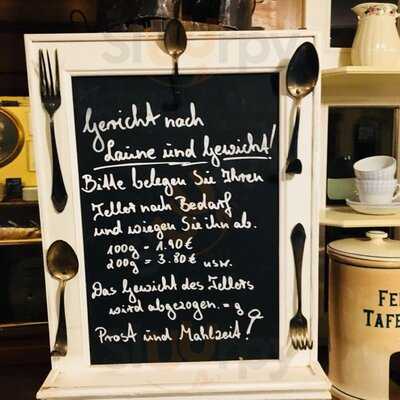 Gericht nach
Laune und Gewicht!
Bitte belegen Sie Ihren
Teller nach Bedarf
und wiegen Sie ihn ab.
100g - 1.90€
200g = 3.80€ usw.
Das Gewicht des Tellers
wird abgezogen. = g
Prost und Mahlzeit!
FE
TAFE